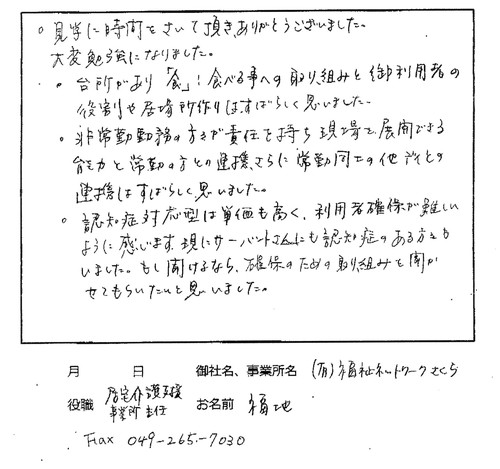 ○見学に時間をさいて頂きありがとうございました。
大変勉強になりました。
・台所があり「食」！食べる事への取り組みと御利用者の
役割や居場所作りはすばらしく思いました。
・非常勤勤務の方々が責任を持ち現場で展開できる
能力と常勤の方との連携、さらに常勤同士の他
連携はすばらしく思いました。
○認知症対応型は単価も高く、利用者確保が難しい
ように感じます。現にサーバントさんにも認知症のある方も
いました。もし聞けるなら、確保のための取り組みを聞か
せてもらいたいと思いました。
月 日 御社名、事業所名 (有)福祉ネットワークさくら
役職 居宅介護支援事業所主任 お名前 福地
Fax 049-265-7030